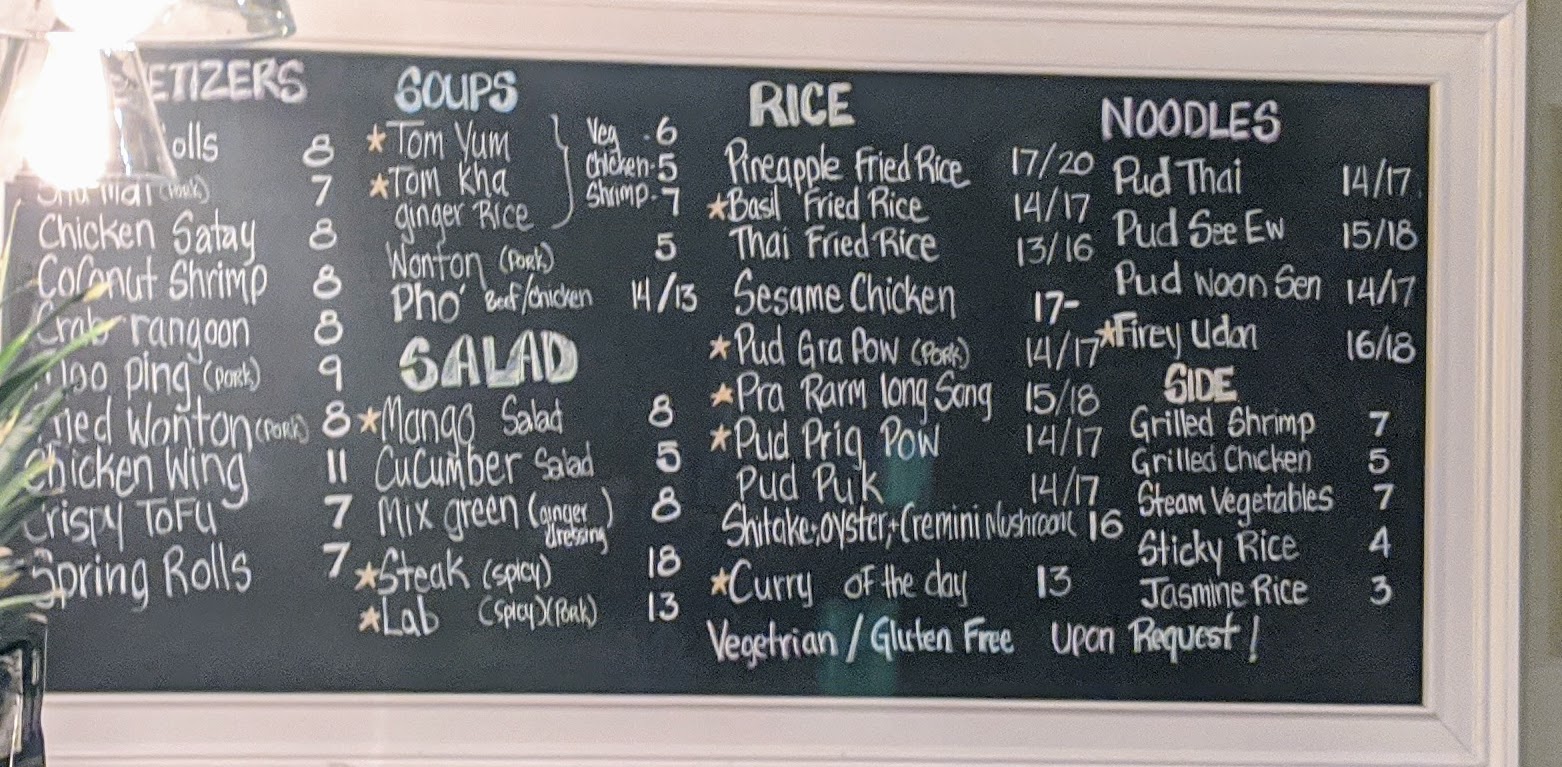 SOUPS
★Tom Yum
★Tom Kha
ginger Rice
Veg - 6
Chicken-5
Shrimp-7
Wonton (Pork) 5
Pho' Beef/chicken 14/13
SALAD
★Mango Salad 8
Cucumber Salad 5
Mix green (ginger dressing) 8
★Steak (spicy) 18
★Lab (spicy)(Pork) 13
8
(Pork) 7
Chicken Satay 8
Coconut Shrimp 8
Crab rangoon 8
Ping (Pork) 9
Wonton (Pork) 8
Chicken Wing 11
Crispy ToFu 7
Spring Rolls 7
RICE
Pineapple Fried Rice 17/20
★Basil Fried Rice 14/17
Thai Fried Rice 13/16
Sesame Chicken 17-
★Pud Gra Pow (Pork) 14/17
★Pra Rarm long Song 15/18
★Pud Prig Pow 14/17
Pud Puk 14/17
Shitake,oyster,+Cremini Mushroom 16
★Curry of the day 13
Vegetrian / Gluten Free Upon Request!
NOODLES
Pud Thai 14/17
Pud See Ew 15/18
Pud Woon Sen 14/17
★Firey Udon 16/18
SIDE
Grilled Shrimp 7
Grilled Chicken 5
Steam Vegetables 7
Sticky Rice 4
Jasmine Rice 3